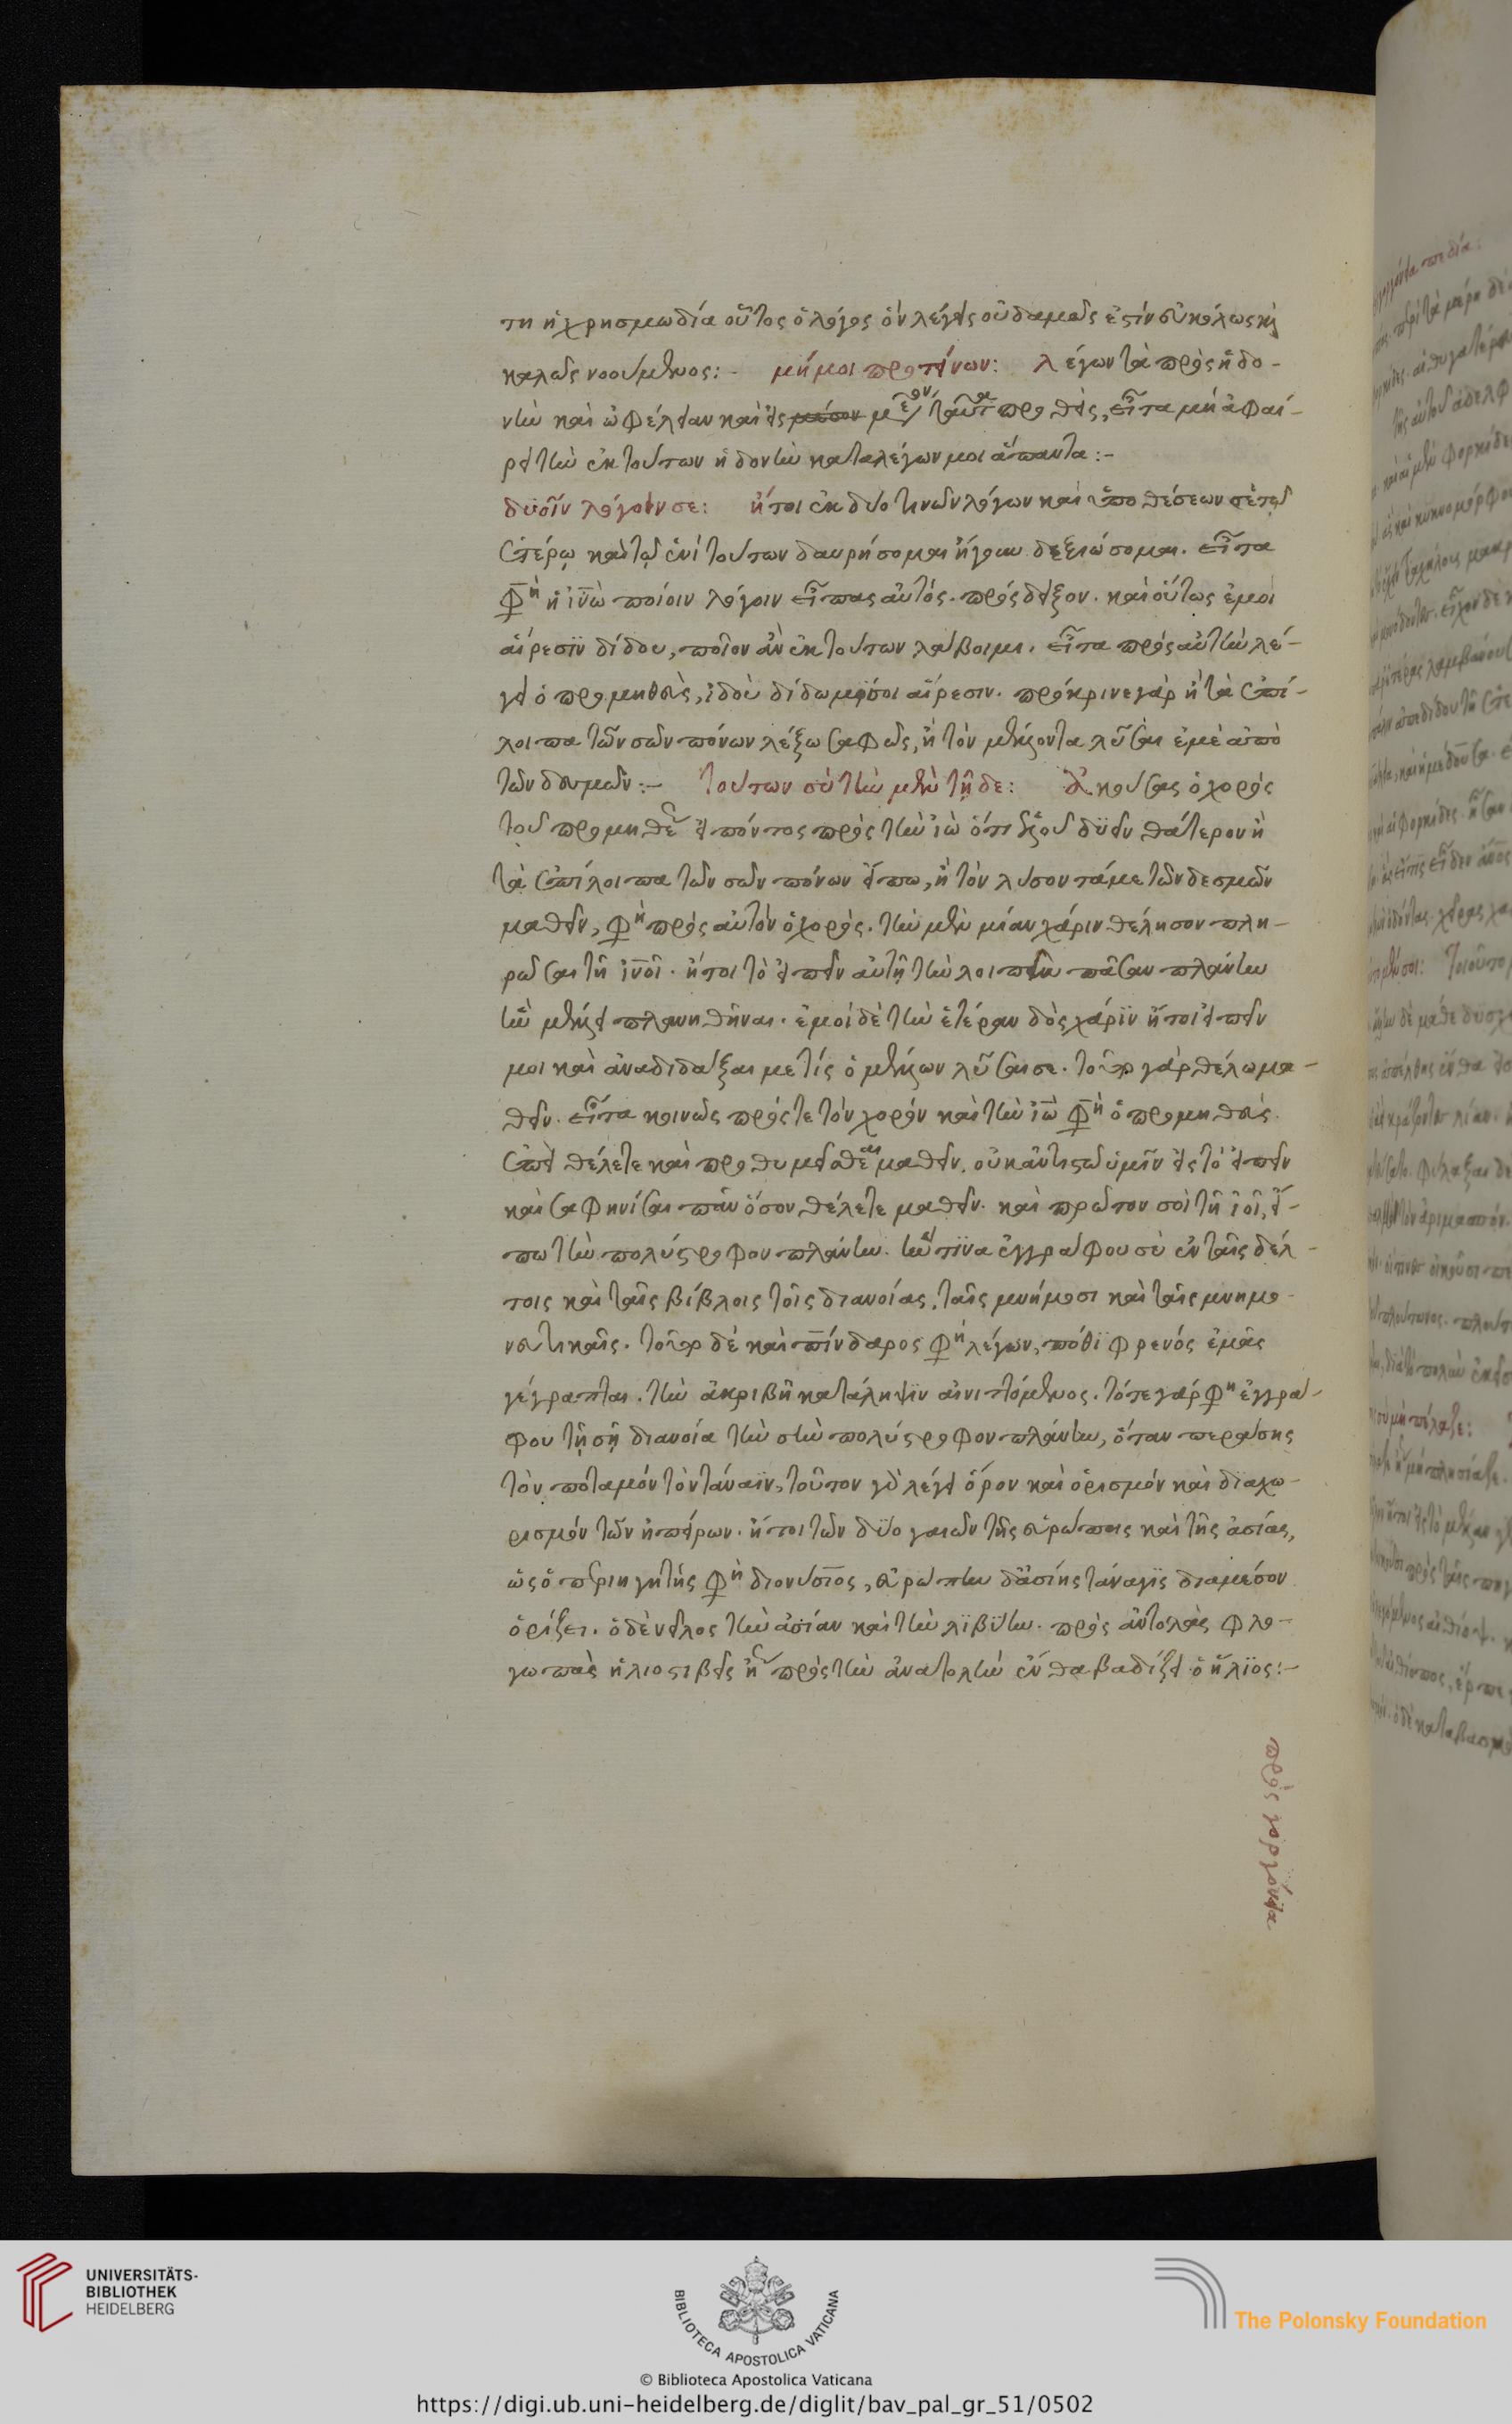 τη ἡ χρησμωδία οὗτος ὁ λόγος ὃν λέγεις οὐδαμῶς ἐστὶν εὐκόλως κỳ
καλῶς νοούμενος:- μή μοι προτείνων: λέγων τὰ πρὸς ἡδο-
νὴν καὶ ὠφέλειαν καὶ εἰς μέσον ταῦτα προθεὶς, εἶτα μὴ ἀφαί-
ρει τὴν ἐκ τούτων ἡδονὴν καταλέγων μοι ἅπαντα:-
δυοῖν λόγοιν σε: ἤτοι ἐκ δύο τινῶν λόγων καὶ ὑποθέσεων σὲ τῷ
ἑτέρῳ καὶ τῷ ἑνὶ τούτων δωρήσομαι ἤγουν δεξιώσομαι. εἶτα
φη ἡ ἰὼ ποίοιν λόγοιν εἶπας αὐτός. πρόσδειξον. καὶ οὕτως ἐμοὶ
αἵρεσιν δίδου, ποῖον ἂν ἐκ τούτων λάβοιμι. εἶτα πρὸς αὐτὴν λέ-
γει ὁ προμηθεὺς, ἰδοὺ δίδωμί σοι αἵρεσιν. πρόκρινε γὰρ ἢ τὰ ἐπί-
λοιπα τῶν σῶν πόνων λέξω σαφῶς, ἢ τὸν μέλλοντα λῦσαι ἐμὲ ἀπὸ
τῶν δεσμῶν:- τούτων σὺ τὴν μὲν τῇδε: ἀκούσας ὁ χορὸς
τοῦ προμηθέως εἰπόντος πρὸς τὴν ἰὼ ὅτι ἐξ οὗ δυεῖν θάτερον ἢ
τὰ ἐπίλοιπα τῶν σῶν πόνων εἴπω, ἢ τὸν λύσοντά με τῶν δεσμῶν
μαθεῖν, φη πρὸς αὐτὸν ὁ χορός. τὴν μὲν μίαν χάριν θέλησον πλη-
ρῶσαι τῇ ἰοῖ. ἤτοι τὸ εἰπεῖν αὐτῇ τὴν λοιπὴν πᾶσαν πλάνην
ἣν μέλλει πλανηθῆναι. ἐμοὶ δὲ τὴν ἑτέραν δὸς χάριν ἤτοι εἰπεῖν
μοι καὶ ἀναδιδάξαι με τίς ὁ μέλλων λῦσαι σε. τοῦτο γὰρ θέλω μα-
θεῖν. εἶτα κοινῶς πρός τε τὸν χορὸν καὶ τὴν ἰὼ φη ὁ προμηθεύς.
ἐπεὶ θέλετε καὶ προθυμεῖσθε μαθεῖν. οὐκ ἀντιστῶ ὑμῖν εἰς τὸ εἰπεῖν
καὶ σαφηνίσαι πᾶν ὅσον θέλετε μαθεῖν. καὶ πρῶτον σοὶ τῇ ἰοῖ, εἴ-
πω τὴν πολύστροφον πλάνην. ἣν τινα ἐγγράφου σὺ ἐν ταῖς δέλ-
τοις καὶ ταῖς βίβλοις τοῖς διανοίας, ταῖς μνήμοσι καὶ ταῖς μνημο-
νευτικαῖς. τοῦτο δὲ καὶ πίνδαρος φη λέγων, πόθι φρενὸς ἐμᾶς
γέγραπται. τὴν ἀκριβῆ κατάληψιν αἰνιττόμενος. τότε γάρ φη ἐγγρά-
φου τῇ σῇ διανοία τὴν σὴν πολύστροφον πλάνην, ὅταν περάσης
τὸν ποταμὸν τὸν τάναϊν, τοῦτον γὰρ λέγει ὅρον καὶ ὁρισμὸν καὶ διαχω-
ρισμὸν τῶν ἠπείρων. ἤτοι τῶν δύο γαιῶν τῆς εὐρώπης καὶ τῆς ἀσίας,
ὡς ὁ περιηγητής φη διονύσιος, εὐρώπην δ' ἀσίης τάναϊς διαμέσον
ὁρίζει. ὁ δὲ νεῖλος τὴν ἀσίαν καὶ τὴν λιβύην. πρὸς ἀντολὰς φλο-
γωπὰς ἡλιοστιβεῖς ἤγουν πρὸς τὴν ἀνατολὴν ἔνθα βαδίζει ὁ ἥλιος:-
πρὸς γοργόνεια
UNIVERSITÄTS-
BIBLIOTHEK
HEIDELBERG
BIBLIOTECA APOSTOLICA VATICANA
The Polonsky Foundation
© Biblioteca Apostolica Vaticana
https://digi.ub.uni-heidelberg.de/diglit/bav_pal_gr_51/0502